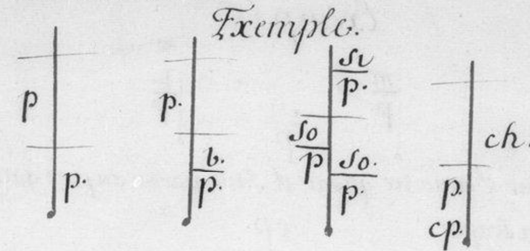 Exemple.
p p.
p. b. p.
si p. so p so. p.
ch. p. cp.